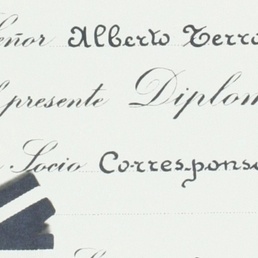 Señor Alberto Terro
l presente Diplom
Socio Corresponsa